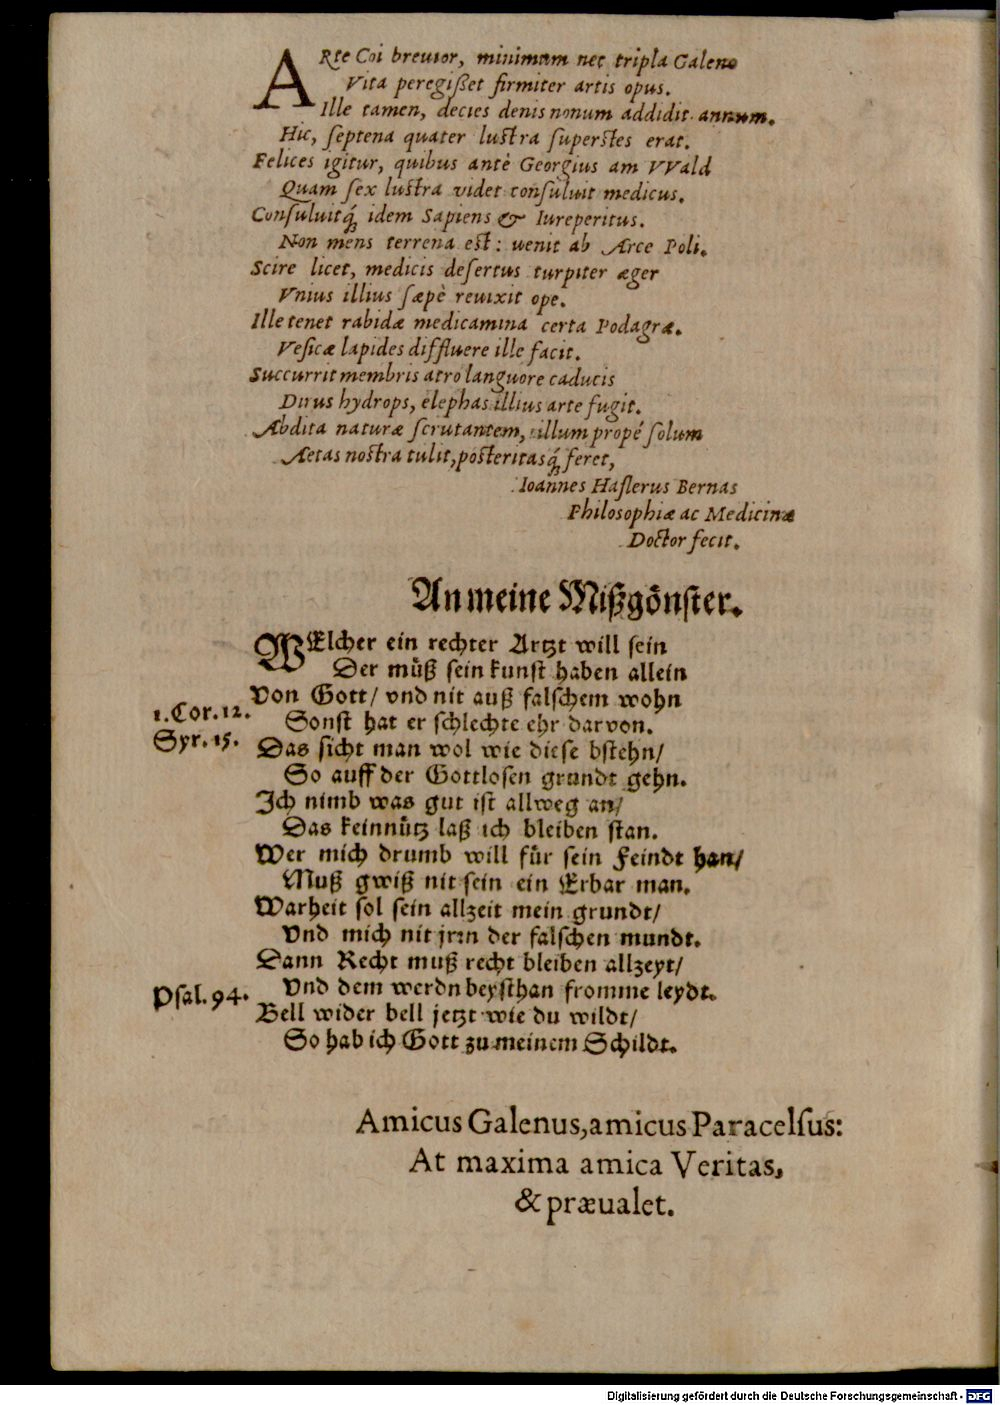 ARte Coi breuior, minimum nec tripla Galeno
Vita peregißet firmiter artis opus.
Ille tamen, decies denis nonum addidit annum.
Hic, ſeptena quater luſtra ſuperſtes erat.
Felices igitur, quibus antè Georgius am VVald
Quam ſex luſtra videt conſuluit medicus.
Conſuluitq́; idem Sapiens & Iureperitus.
Non mens terrena eſt: uenit ab Arce Poli.
Scire licet, medicis deſertus turpiter æger
Vnius illius ſæpè reuixit ope.
Ille tenet rabidæ medicamina certa Podagræ.
Veſicæ lapides diffluere ille facit.
Succurrit membris atro languore caducis
Dirus hydrops, elephas illius arte fugit.
Abdita naturæ ſcrutantem, illum propé ſolum
Aetas noſtra tulit, poſteritasq́; feret,
Ioannes Haſlerus Bernas
Philoſophiæ ac Medicinæ
Doctor fecit.
An meine Mißgoͤnſter.
WElcher ein rechter Artzt will ſein
Der muͤß ſein kunſt haben allein
Von Gott/ vnd nit auß falſchem wohn
1. Cor. 12.
Sonſt hat er ſchlechte ehr darvon.
Syr. 15.
Das ſicht man wol wie dieſe bſtehn/
So auff der Gottloſen grundt gehn.
Ich nimb was gut iſt allweg an/
Das keinnuͤtz laß ich bleiben ſtan.
Wer mich drumb will fuͤr ſein Feindt han/
Muß gwiß nit ſein ein Erbar man.
Warheit ſol ſein allzeit mein grundt/
Vnd mich nit jrꝛn der falſchen mundt.
Dann Recht muß recht bleiben allzeyt/
Psal. 94.
Vnd dem werdn beyſthan fromme leydt.
Bell wider bell jetzt wie du wildt/
So hab ich Gott zu meinem Schildt.
Amicus Galenus, amicus Paracelſus:
At maxima amica Veritas,
& præualet.
Digitalisierung gefördert durch die Deutsche Forschungsgemeinschaft - DFG